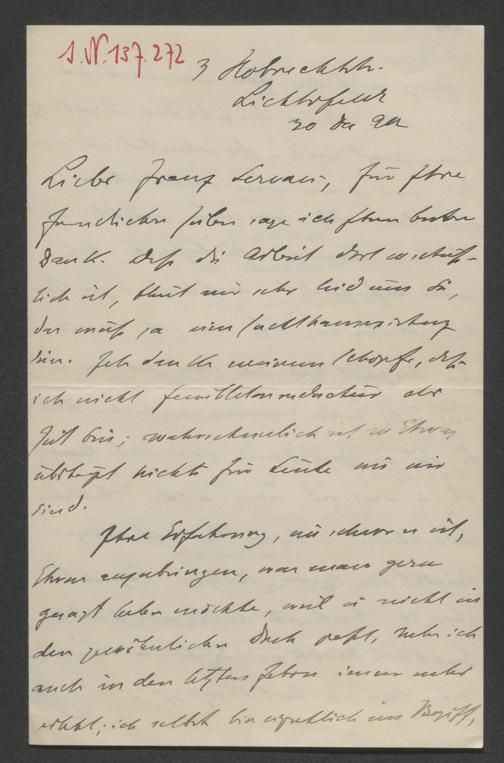 I. N. 137.272
3 Hobrechtstr.
Lichterfelde
30 Dec 92
Lieber Franz Servaes, für Ihre
freundlichen Zeilen sage ich Ihnen besten
Dank. Daß die Arbeit dort so
lich ist, thut mir sehr leid um Sie,
das muß ja eine
sein. Ich danke meinem Schöpfer, daß
ich nicht Feuilletonredacteur der
Zeit bin; wahrscheinlich ist so Etwas
überhaupt nichts für Leute wie wir
sind.
Ihre Erfahrung, wie schwer es ist,
Etwas anzubringen, was man gern
gesagt haben möchte, weil es nicht in
den gewöhnlichen paßt, habe ich
auch in den letzten Jahren immer mehr
erlebt; ich selbst bin eigentlich im Begriff,